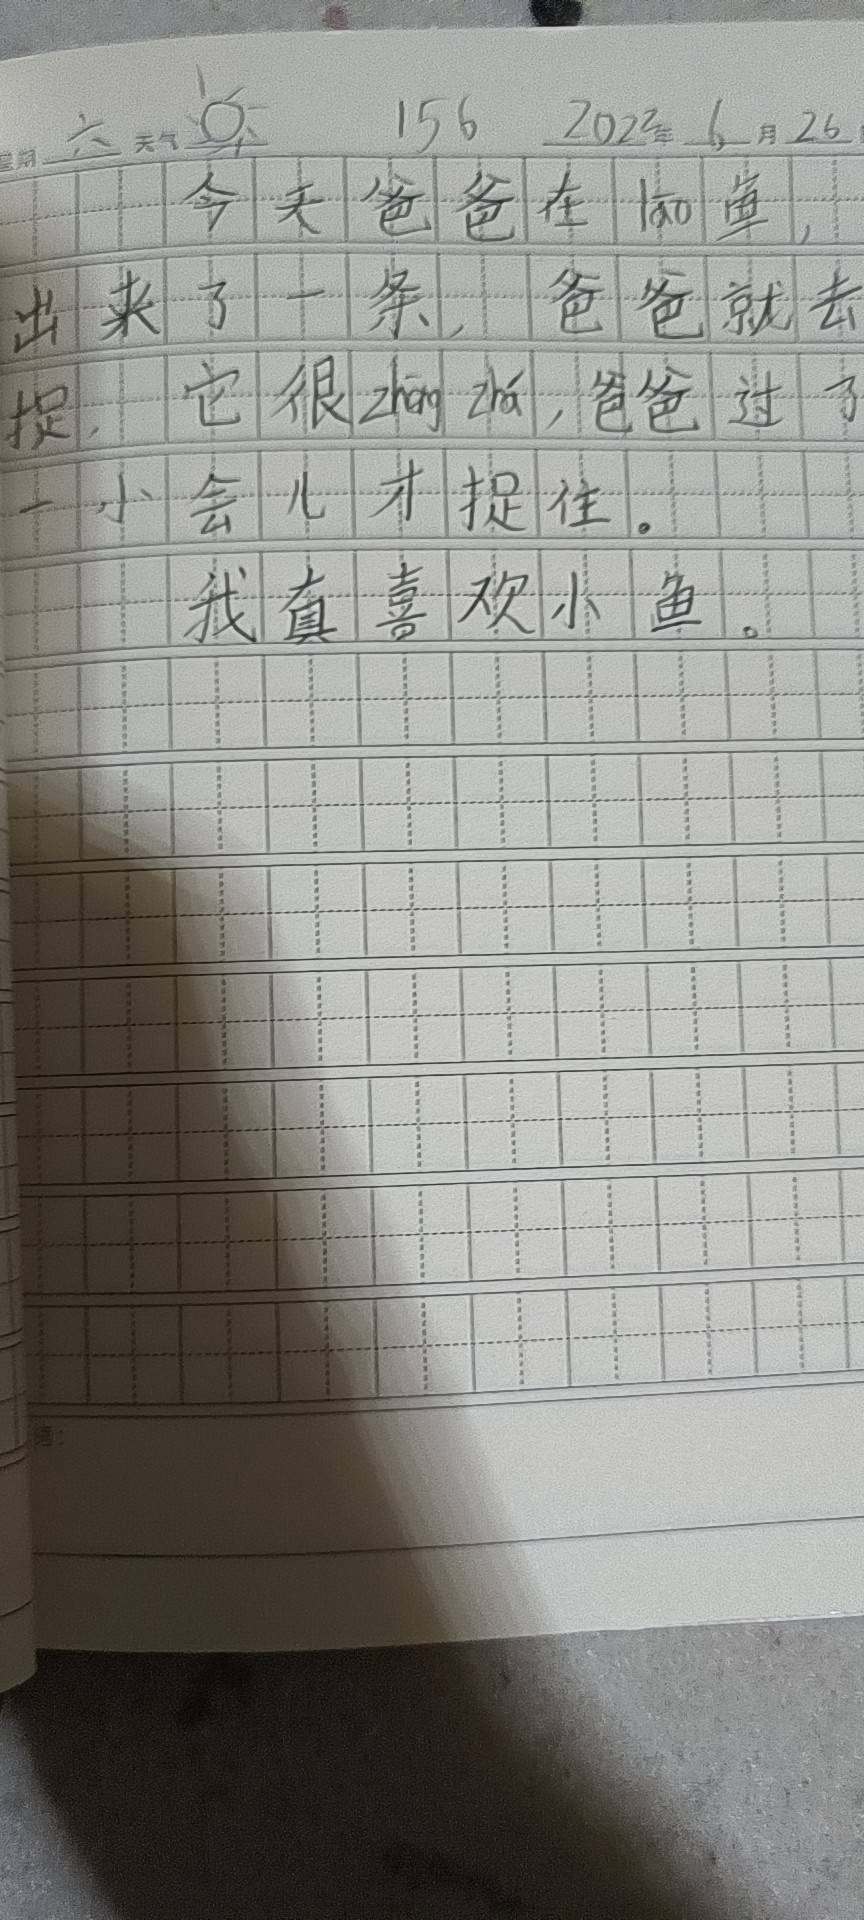 星期 六 天气 156 2022年 6月 26
今天爸爸在lāo鱼，
出来了一条，爸爸就去
捉，它很zhēng zhá，爸爸过了
一小会儿才捉住。
我真喜欢小鱼。